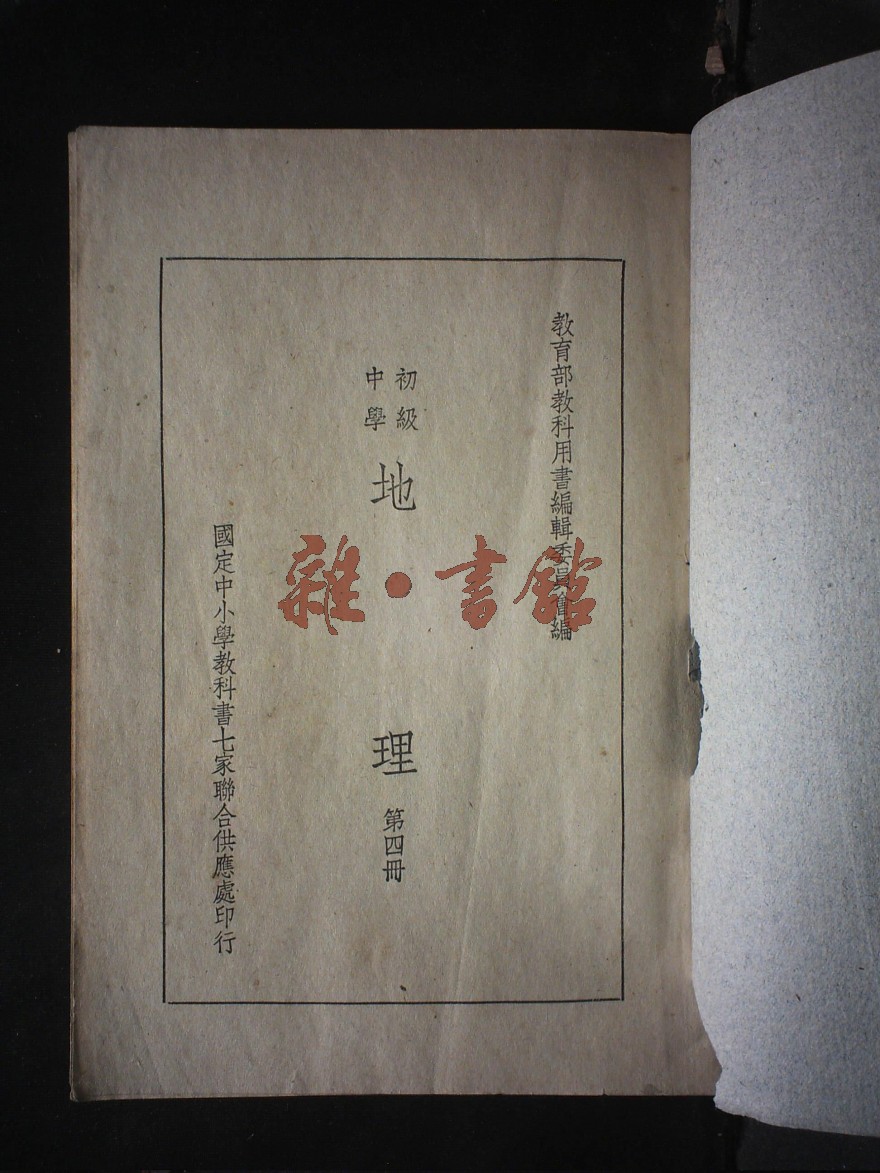 教育部教科用書編輯委員會編
初級
中學
地理
第四冊
國定中小學教科書七家聯合供應處印行
雜·書館